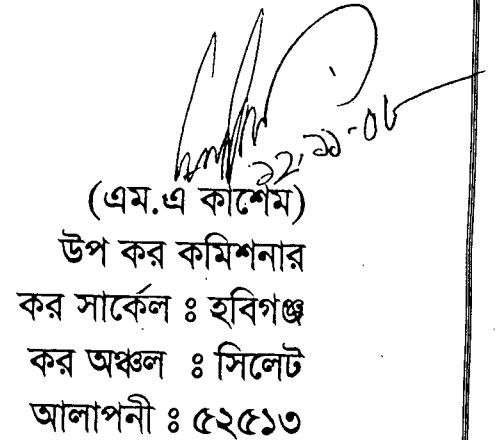 ১২-১১-০৮
(এম.এ কাশেম)
উপ কর কমিশনার
কর সার্কেল ঃ হবিগঞ্জ
কর অঞ্চল ঃ সিলেট
আলাপনী ঃ ৫২৫১৩